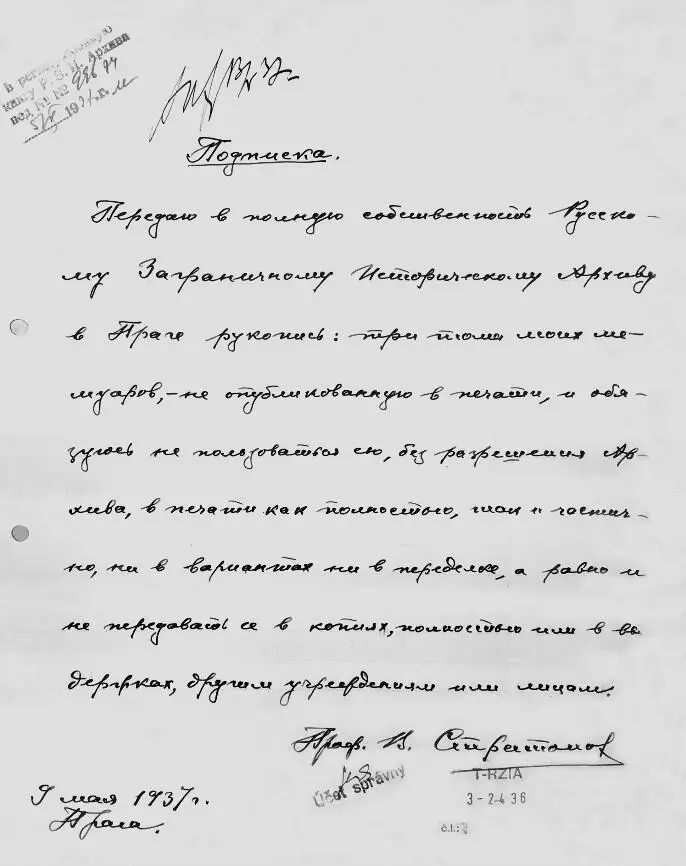 В регистрационную
книгу Р. З. И. Архива
под № №
193 г.
Подписка.
Передаю в полную собственность Русско-
му Заграничному Историческому Архиву
в Праге рукопись: три тома моих ме-
муаров,-не опубликованную в печати, и обя-
зуюсь не пользоваться ею, без разрешения Ар-
хива, в печати как полностью, так и частич-
но, ни в вариантах ни в переделке, а равно и
не передавать ее в копиях, полностью или в вы
держках, другим учреждениям или лицам.
Проф. В. Стратонов
Účet správny
T-RZIA
3-2436
č.l.:
9 мая 1937 г.
Прага.